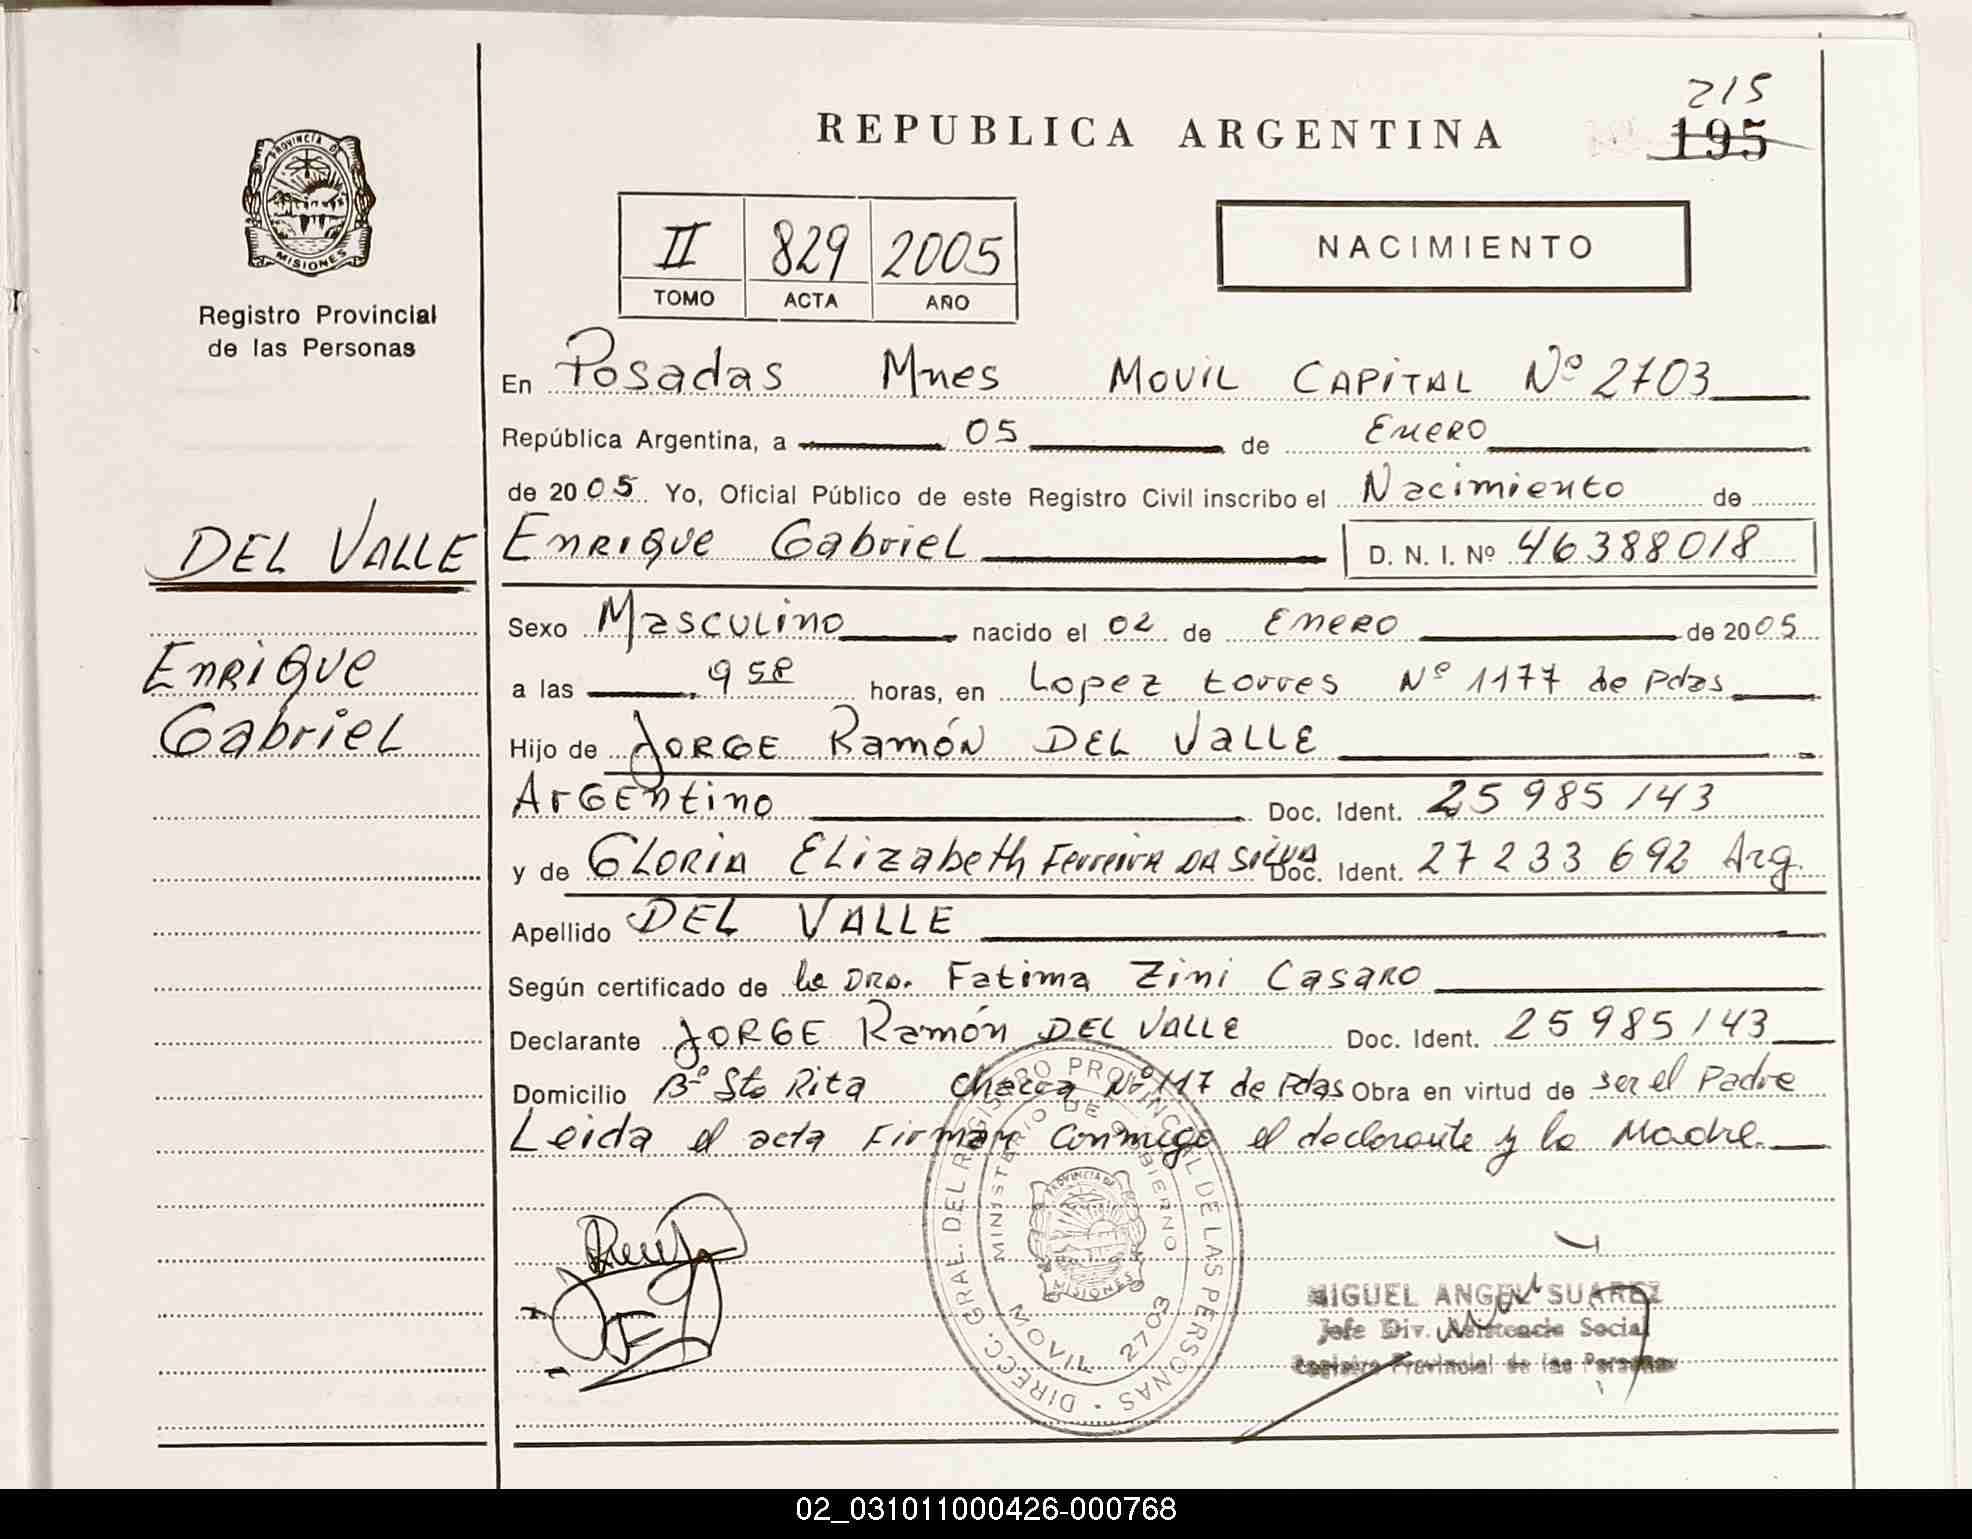 215
REPUBLICA ARGENTINA
195
PROVINCIA DE
MISIONES
Registro Provincial
de las Personas
II 829 2005
TOMO ACTA AÑO
NACIMIENTO
En Posadas Mnes MOVIL CAPITAL Nº 2703
República Argentina, a 05 de Enero
de 2005 Yo, Oficial Público de este Registro Civil inscribo el Nacimiento de
DEL VALLE
Enrique Gabriel D. N. I. Nº 46388018
Sexo Masculino nacido el 02 de Enero de 2005
Enrique
a las 9 58 horas, en Lopez torres Nº 1177 de Pdas
Gabriel
Hijo de Jorge Ramón DEL VALLE
Argentino Doc. Ident. 25 985 143
y de Gloria Elizabeth Ferreira DA SILVA Doc. Ident. 27 233 692 Arg.
Apellido DEL VALLE
Según certificado de la Dra. Fatima Zini Casaro
Declarante Jorge Ramón DEL VALLE Doc. Ident. 25 985 143
Domicilio Bº Sta Rita Chacra Nº 117 de Pdas Obra en virtud de ser el Padre
Leida el acta Firman conmigo el declarante y la Madre.
DIRECC. GRAL. DEL REGISTRO PROVINCIAL DE LAS PERSONAS
MINISTERIO DE GOBIERNO
PROVINCIA DE
MISIONES
MOVIL 2703
MIGUEL ANGEL SUAREZ
Jefe Div. Asistencia Social
Registro Provincial de las Personas
02_031011000426-000768